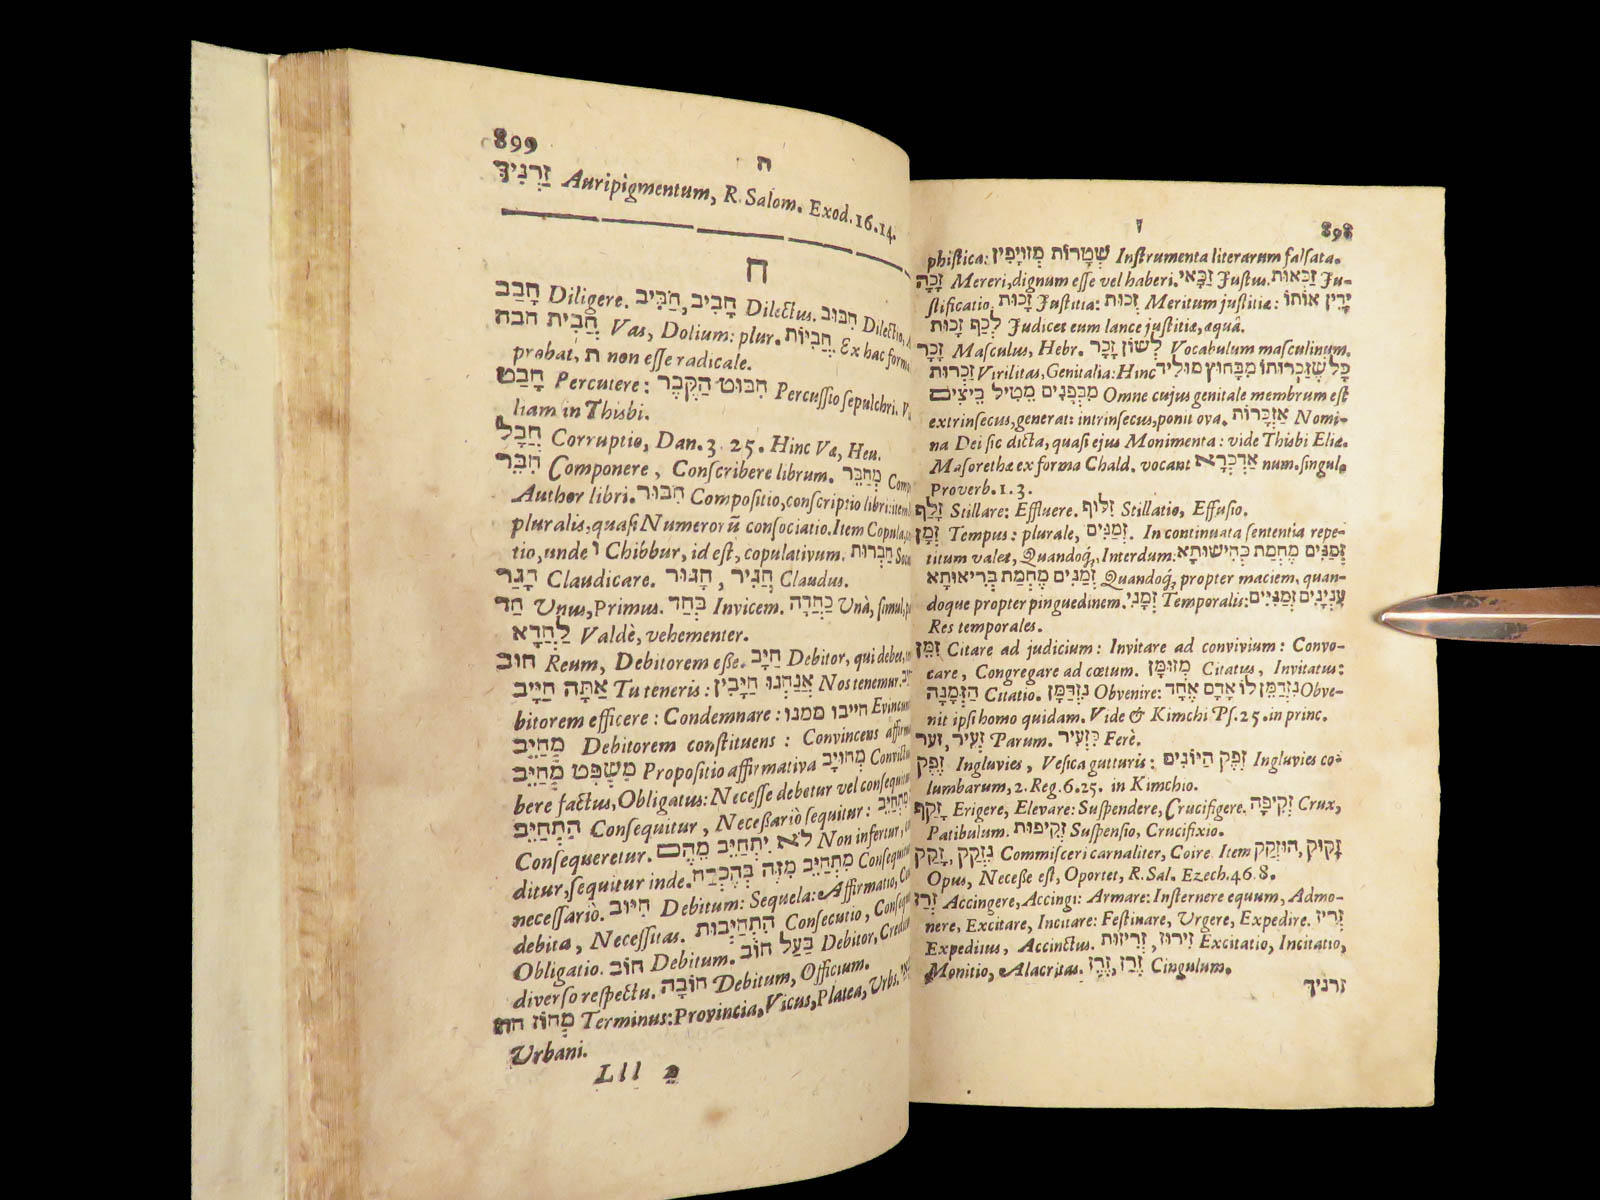 ו 898
phistica: שְׁטָרוֹת מְזוּיָפִין Instrumenta literarum falsata.
זָכָה Mereri, dignum esse vel haberi. זַכָּאי Justus. זַכָּאוּת Ju-
stificatio. זָכוּת Justitia: זְכוּת Meritum justitiæ: יָדִין אוֹתוֹ
לְכַף זָכוּת Judicet eum lance justitiæ, æquâ.
זָכָר Masculus, Hebr. לְשׁוֹן זָכָר Vocabulum masculinum.
זַכְרוּת Virilitas, Genitalia: Hinc כָּל שֶׁזַּכְרוּתוֹ מִבַּחוּץ מוֹלִיד
מִבִּפְנִים מֵטִיל בֵּיצִים Omne cujus genitale membrum est
extrinsecus, generat: intrinsecus, ponit ova. אַזְכָּרוֹת Nomi-
na Dei sic dicta, quasi ejus Monimenta: vide Thisbi Eliæ.
Masorethæ ex forma Chald. vocant אַדְכְּרָא num. singul.
Proverb. 1. 3.
זָלַף Stillare: Effluere. זִלּוּף Stillatio, Effusio.
זְמָן Tempus: plurale, זְמַנִּים. In continuata sententia repe-
titum valet, Quandoq́, Interdum: זְמַנִּים מֵחֲמַת כְּחִישׁוּתָא
זְמַנִּים מֵחֲמַת בְּרִיאוּתָא Quandoq́; propter maciem, quan-
doque propter pinguedinem. זְמַנִּי Temporalis: עִנְיָנִים זְמַנִּיִּים
Res temporales.
זִמֵּן Citare ad judicium: Invitare ad convivium: Convo-
care, Congregare ad cœtum. מְזוּמָּן Citatus, Invitatus:
הַזְמָנָה Citatio. נִזְדַּמֵּן Obvenire: נִזְדַּמֵּן לוֹ אָדָם אֶחָד Obve-
nit ipsi homo quidam. Vide & Kimchi Ps. 25. in princ.
זְעֵיר, זער Parum. כִּזְעֵיר Ferè.
זֶפֶק Ingluvies, Vesica gutturis: זֶפֶק הַיּוֹנִים Ingluvies co-
lumbarum, 2. Reg. 6. 25. in Kimchio.
זָקַף Erigere, Elevare: Suspendere, Crucifigere. זְקִיפָה Crux,
Patibulum. זְקִיפוּת Suspensio, Crucifixio.
זָקַק, נִזְקַק Commisceri carnaliter, Coire. Item זָקוּק, הוּזְקַק
Opus, Necesse est, Oportet, R. Sal. Ezech. 46. 8.
זָרַז Accingere, Accingi: Armare: Insternere equum, Admo-
nere, Excitare, Incitare: Festinare, Urgere, Expedire. זָרִיז
Expeditus, Accinctus. זֵירוּז, זְרִיזוּת Excitatio, Incitatio,
Monitio, Alacritas. זֵרַז, זֶרֶז Cingulum.
זרניך
899 ח
זַרְנִיךְ Auripigmentum, R. Salom. Exod. 16. 14.
ח
חָבַב Diligere. חָבִיב, חַבִּיב Dilectus. חִבּוּב Dilectio,
חבה חָבִית Vas, Dolium: plur. חֲבִיּוֹת Ex hac forma
probat, ת non esse radicale.
חָבַט Percutere: חִבּוּט הַקֶּבֶר Percussio sepulchri.
liam in Thisbi.
חֲבָל Corruptio, Dan. 3. 25. Hinc Væ, Heu.
חִבֵּר Componere, Conscribere librum. מְחַבֵּר
Author libri. חִבּוּר Compositio, conscriptio libri: item
pluralis, quasi Numerorū consociatio. Item Copula,
tio, unde ו Chibbur, id est, copulativum. חַבְרוּת
חָגַר Claudicare. חִגֵּיר, חָגוּר Claudus.
חַד Unus, Primus. בְּחַד Invicem. כַּחֲדָה Unà, simul,
לַחֲדָא Valdè, vehementer.
חוב Reum, Debitorem esse. חַיָּב Debitor, qui debet,
אַתָּה חַיָּיב Tu teneris: אֲנַחְנוּ חַיָּבִין Nos tenemur.
bitorem efficere: Condemnare: חייבו ממנו
מְחַיֵּב Debitorem constituens: Convincens
מִשְׁפָּט מְחַיֵּב Propositio affirmativa מְחוּיָב
bere factus, Obligatus: Necesse debetur vel
הִתְחַיֵּב Consequitur, Necessariò sequitur:
Consequeretur. לֹא יִתְחַיֵּב מֵהֶם Non infertur,
ditur, sequitur inde. מִתְחַיֵּב מִזֶּה בְּהֶכְרַח
necessariò. חִיּוּב Debitum: Sequela: Affirmatio,
debita, Necessitas. הִתְחַיְּבוּת Consecutio,
Obligatio. חוֹב Debitum. בַּעַל חוֹב Debitor,
diverso respectu. חוֹבָה Debitum, Officium.
חוז מָחוֹז Terminus: Provincia, Vicus, Platea, Urbs.
Urbani.
Lll 2